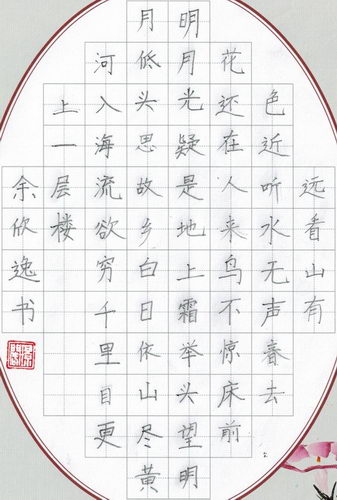 远看山有
色近听水无声春去
花还在人来鸟不惊床前
明月光疑是地上霜举头望明
月低头思故乡白日依山尽黄
河入海流欲穷千里目更
上一层楼
余欣逸书